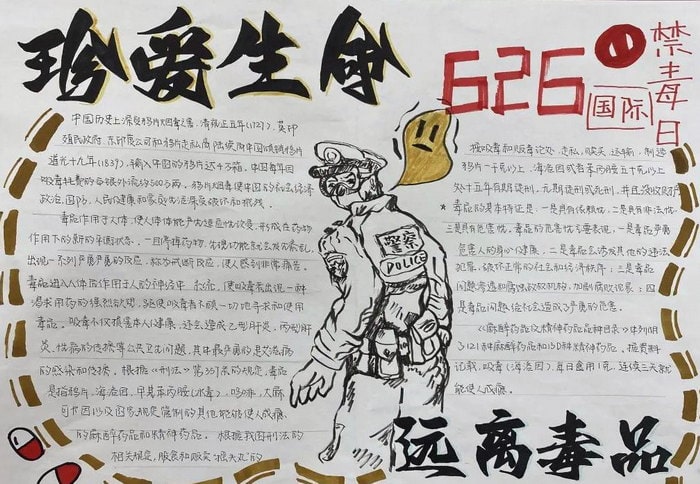 珍爱生命
626
国际
禁毒日
中国历史上深受鸦片烟毒之害,清雍正五年(1727),英印
殖民政府、东印度公司将鸦片走私高
道光十九年(1839),输入中国的鸦片达4万箱,中国每年因
吸毒耗费的白银外流约500万两,鸦片烟毒使中国
政治、国防、人民健康和家庭生活
毒品作用于人体,使人体体能产生适应性改变,形成在药物
作用下的新的平衡状态。一旦停掉药物,生理功能就会发生紊乱,
出现一系列严重的反应,称为戒断反应,使人感到非常痛苦。
毒品进入人体后作用于人的神经中
渴求用药的强烈欲望,驱使吸毒者不顾一切地寻求和使用
毒品。吸毒不仅损害本人健康,还会造成乙型肝炎、丙型肝
炎、性病的传播等公共卫生问题,其中最严重的是艾滋病
的感染和传播。根据《刑法》第357条的规定,毒品
是指鸦片、海洛因、甲基苯丙胺(冰毒)、吗啡、大麻、
可卡因以及国家规定管制的其他能够使人
的麻醉药品和精神药品。根据我国刑法的
相关规定,服食和贩卖"摇头丸"的
警察
POLICE
按吸毒和贩毒论处。走私、贩卖、运输、制造
鸦片一千克以上,海洛因或者苯丙胺五十克以上
处十五年有期徒刑、无期徒刑或死刑,并且没收财产
*毒品的基本特征是:一是具有依赖性,二是具有非法性,
三是具有危害性,毒品的危害性主要表现:一是毒品严重
危害人的身心健康,二是毒品会诱发其他的违法
犯罪,破坏正常的社会和经济秩序;三是毒品
问题渗透和腐蚀政权机构,加剧腐败现象;四
是毒品问题给社会造成了严重的危害。
《麻醉药品及精神药品品种目录》中列明
了121种麻醉药品和130种精神药品。据资料
记载,吸毒(海洛因),每日食用1克,连续三天就
能使人成瘾。
远离毒品